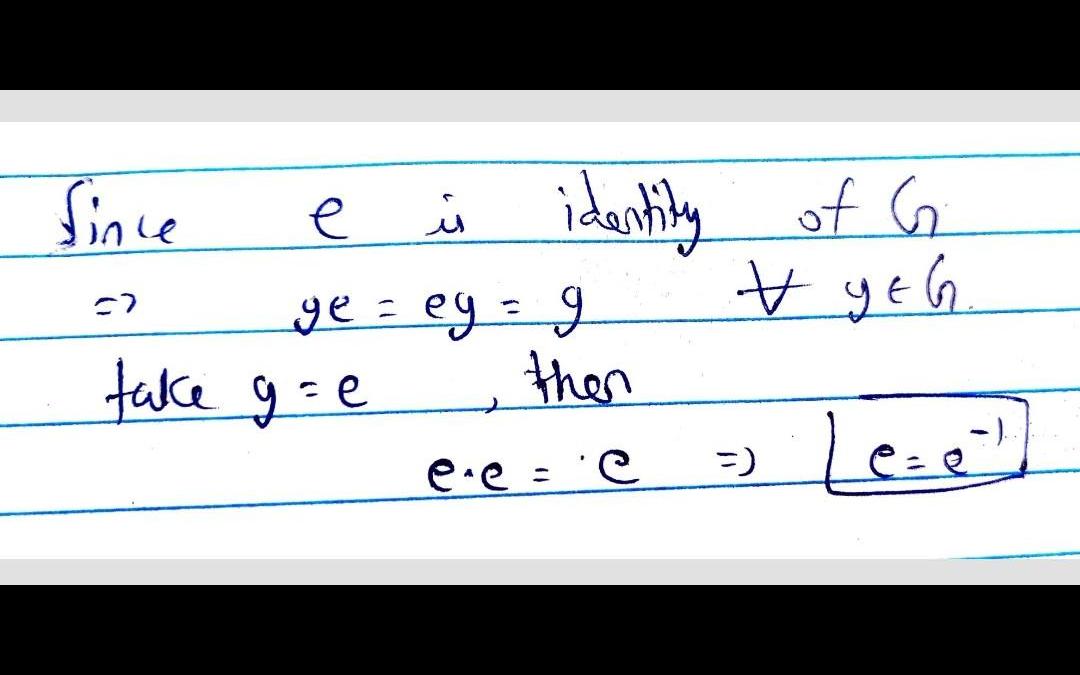 Since e is identity of G
=> ge = eg = g ∀ g ∈ G.
take g = e , then
e·e = e => e = e⁻¹